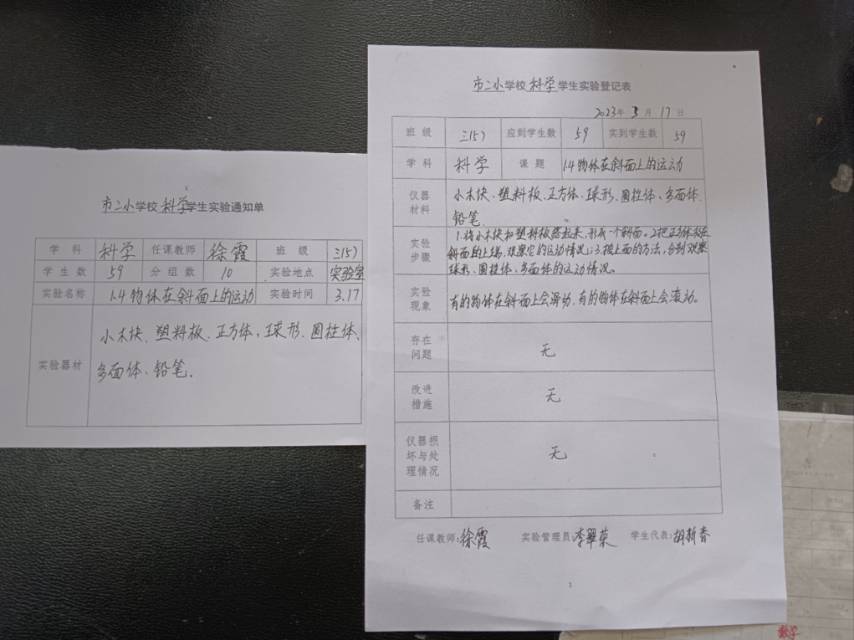 市二小学校科学学生实验通知单
学科 科学 任课教师 徐霞 班级 三(5)
学生数 59 分组数 10 实验地点 实验室
实验名称 1.4物体在斜面上的运动 实验时间 3.17
实验器材
小木块、塑料板、正方体、球形、圆柱体、
多面体、铅笔.
市二小学校科学学生实验登记表
2023年3月17日
班级 三(5) 应到学生数 59 实到学生数 59
学科 科学 课题 1.4物体在斜面上的运动
仪器材料
小木块、塑料板、正方体、球形、圆柱体、多面体、
铅笔
实验步骤
1.将小木块和塑料板搭起来,形成一个斜面。2.把正方体放在
斜面的上端,观察它的运动情况;3.按上面的方法,分别观察
球形、圆柱体、多面体的运动情况。
实验现象
有的物体在斜面上会滑动,有的物体在斜面上会滚动。
存在问题 无
改进措施 无
仪器损坏与处理情况 无
备注
任课教师:徐霞 实验管理员:李翠荣 学生代表:胡新春